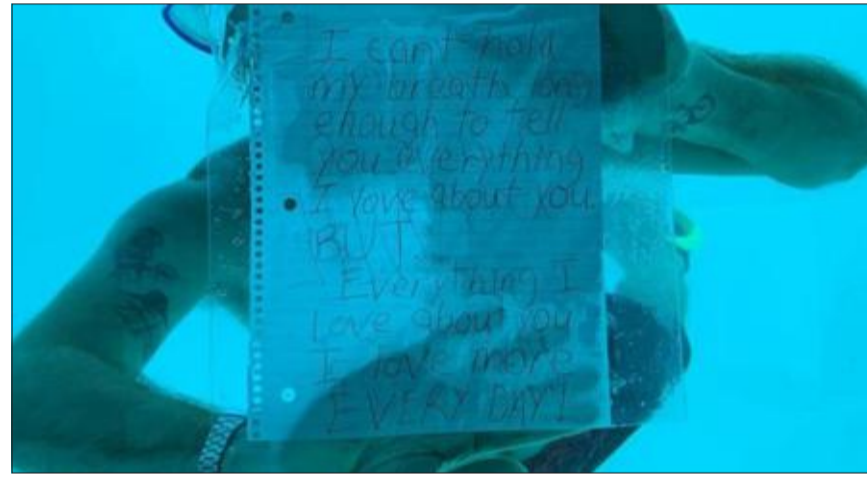 I cant hold
my breath long
enough to tell
you everything
I love about you.
BUT
Everything I
Love about you
I love more
EVERY DAY!